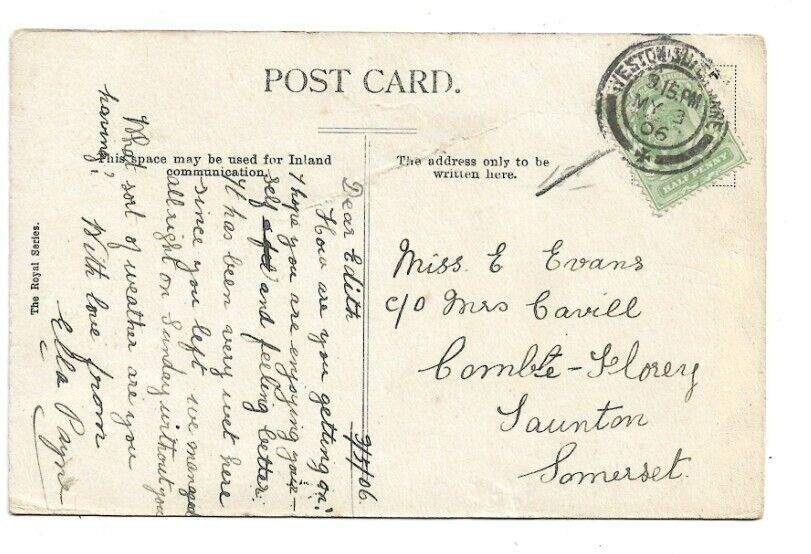 POST CARD.
This space may be used for Inland
communication.
The address only to be
written here.
The Royal Series.
WESTON SUPER MARE
3.15 PM
MY 3
06
HALFPENNY
Miss. E Evans
c/o Mrs Cavill
Combe-Florey
Taunton
Somerset.
3/5/06.
Dear Edith
How are you getting on?
I hope you are enjoying your-
self and and feeling better.
It has been very wet here
since you left we managed
allright on Sunday without you
What sort of weather are you
having?
With love from
Ella Payne